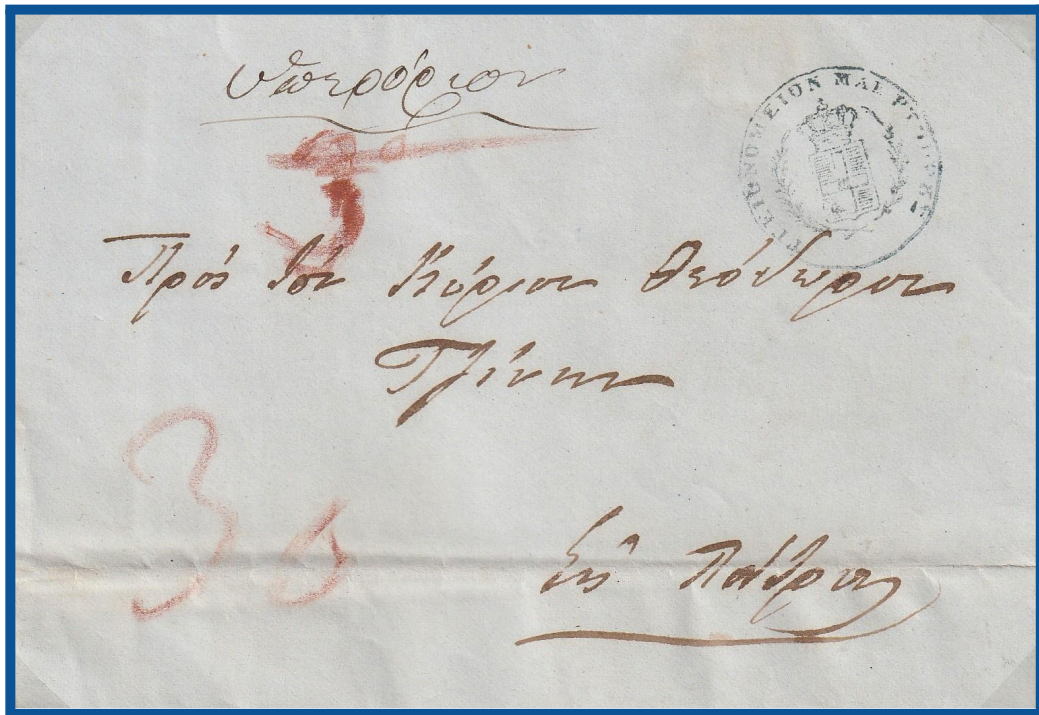 Υπερόριον
ΥΓΕΙΟΝΟΜΕΙΟΝ
Πρὸς τὸν Κύριον Θεόδωρον
Τζίνην
30
Εἰς Πάτρας